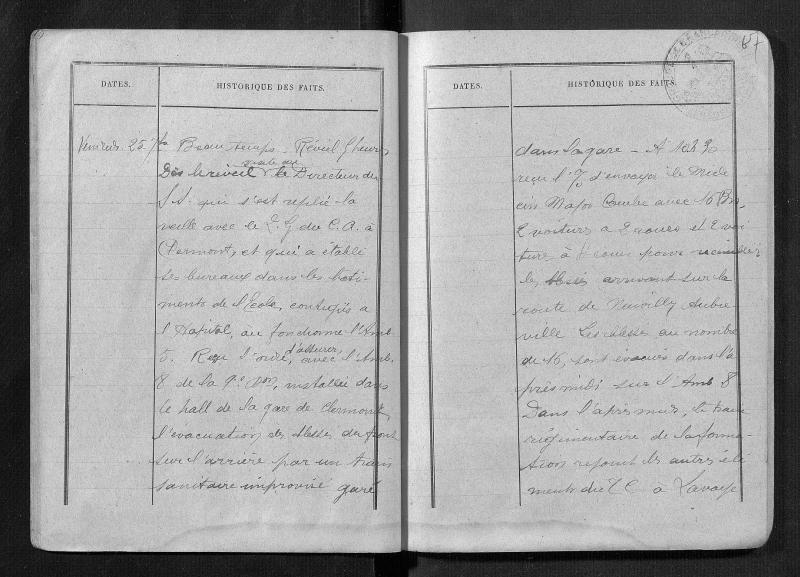 DATES.
HISTORIQUE DES FAITS.
Vendredi 25 7bre
Beau temps – Réveil 6 heures
Dès le réveil visite au Directeur du
S.S. qui s'est replié la
veille avec le Q.G du C.A. à
Clermont, et qui a établi
ses bureaux dans les bâti-
ments de l'École, contigüs à
l'Hôpital, où fonctionne l'Amb.
5. Reçu l'ordre, d'assurer, avec l'Amb.
8 de la 9e Don, installée dans
le hall de la gare de Clermont,
l'évacuation des blessés du front
sur l'arrière par un train
sanitaire improvisé garé
67
DATES.
HISTORIQUE DES FAITS.
dans la gare – A 10h30
reçu l'O d'envoyer le Méde
cin Major Combe avec 16 Brs,
2 voitures à 2 roues et 2 voi
tures à 4 roues pour recueillir
les blessés arrivant sur la
route de Neuvilly Aubré
ville Les blessés au nombre
de 16, sont évacués dans l'a
près midi sur l'Amb 8
Dans l'après midi, le train
régimentaire de la forma-
tion rejoint les autres élé
ments du TC à Lavoye